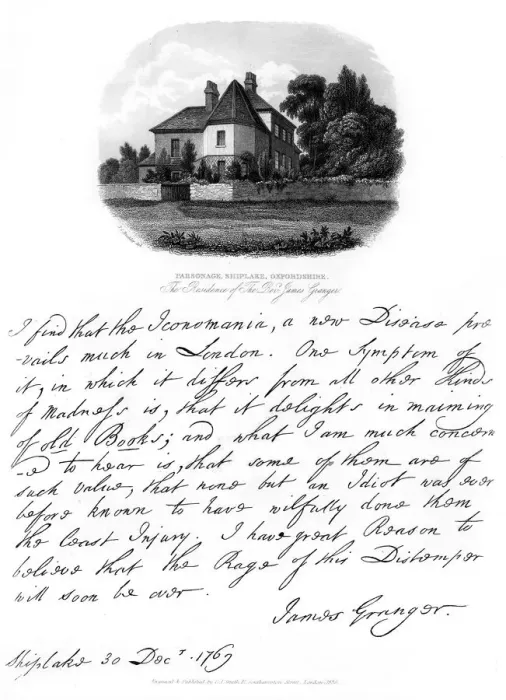 PARSONAGE, SHIPLAKE, OXFORDSHIRE.
The Residence of The Revd. James Granger.
I find that the Iconomania, a new Disease pre
-vails much in London. One Symptom of
it, in which it differs from all other Kinds
of Madness is, that it delights in maiming
of old Books; and what I am much concern
-ed to hear is, that some of them are of
such value, that none but an Idiot was ever
before known to have wilfully done them
the least Injury. I have great Reason to
believe that the Rage of this Distemper
will soon be over.
James Granger.
Shiplake 30 Decr. 1769
Engraved & Published by
London